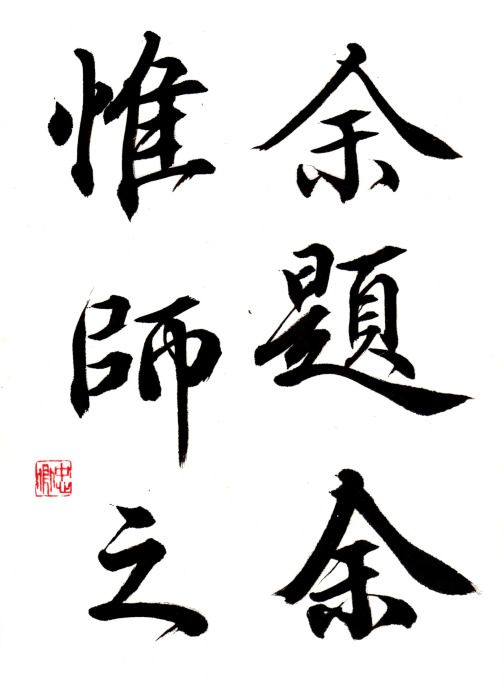 余題余
惟師之